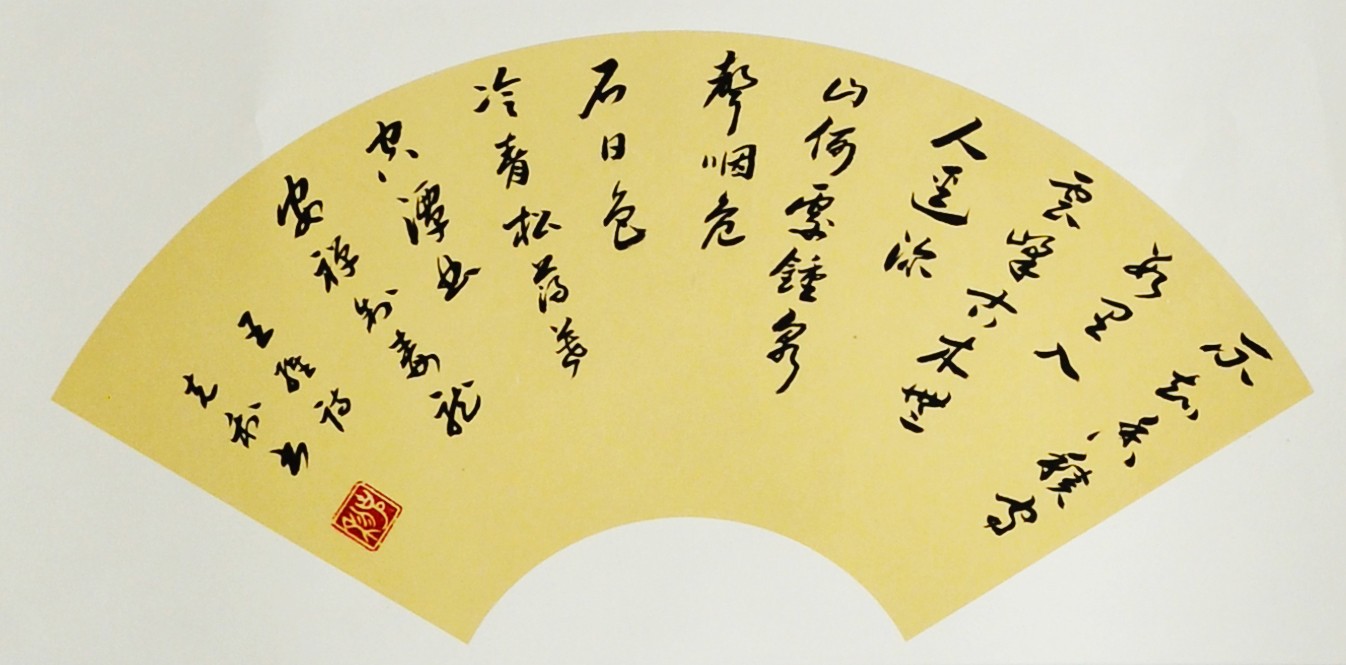 不知香積寺
数里入
雲峯古木無
人逕深
山何處鍾泉
聲咽危
石日色
冷青松薄暮
空潭曲
安禅制毒龍
王維詩
克书